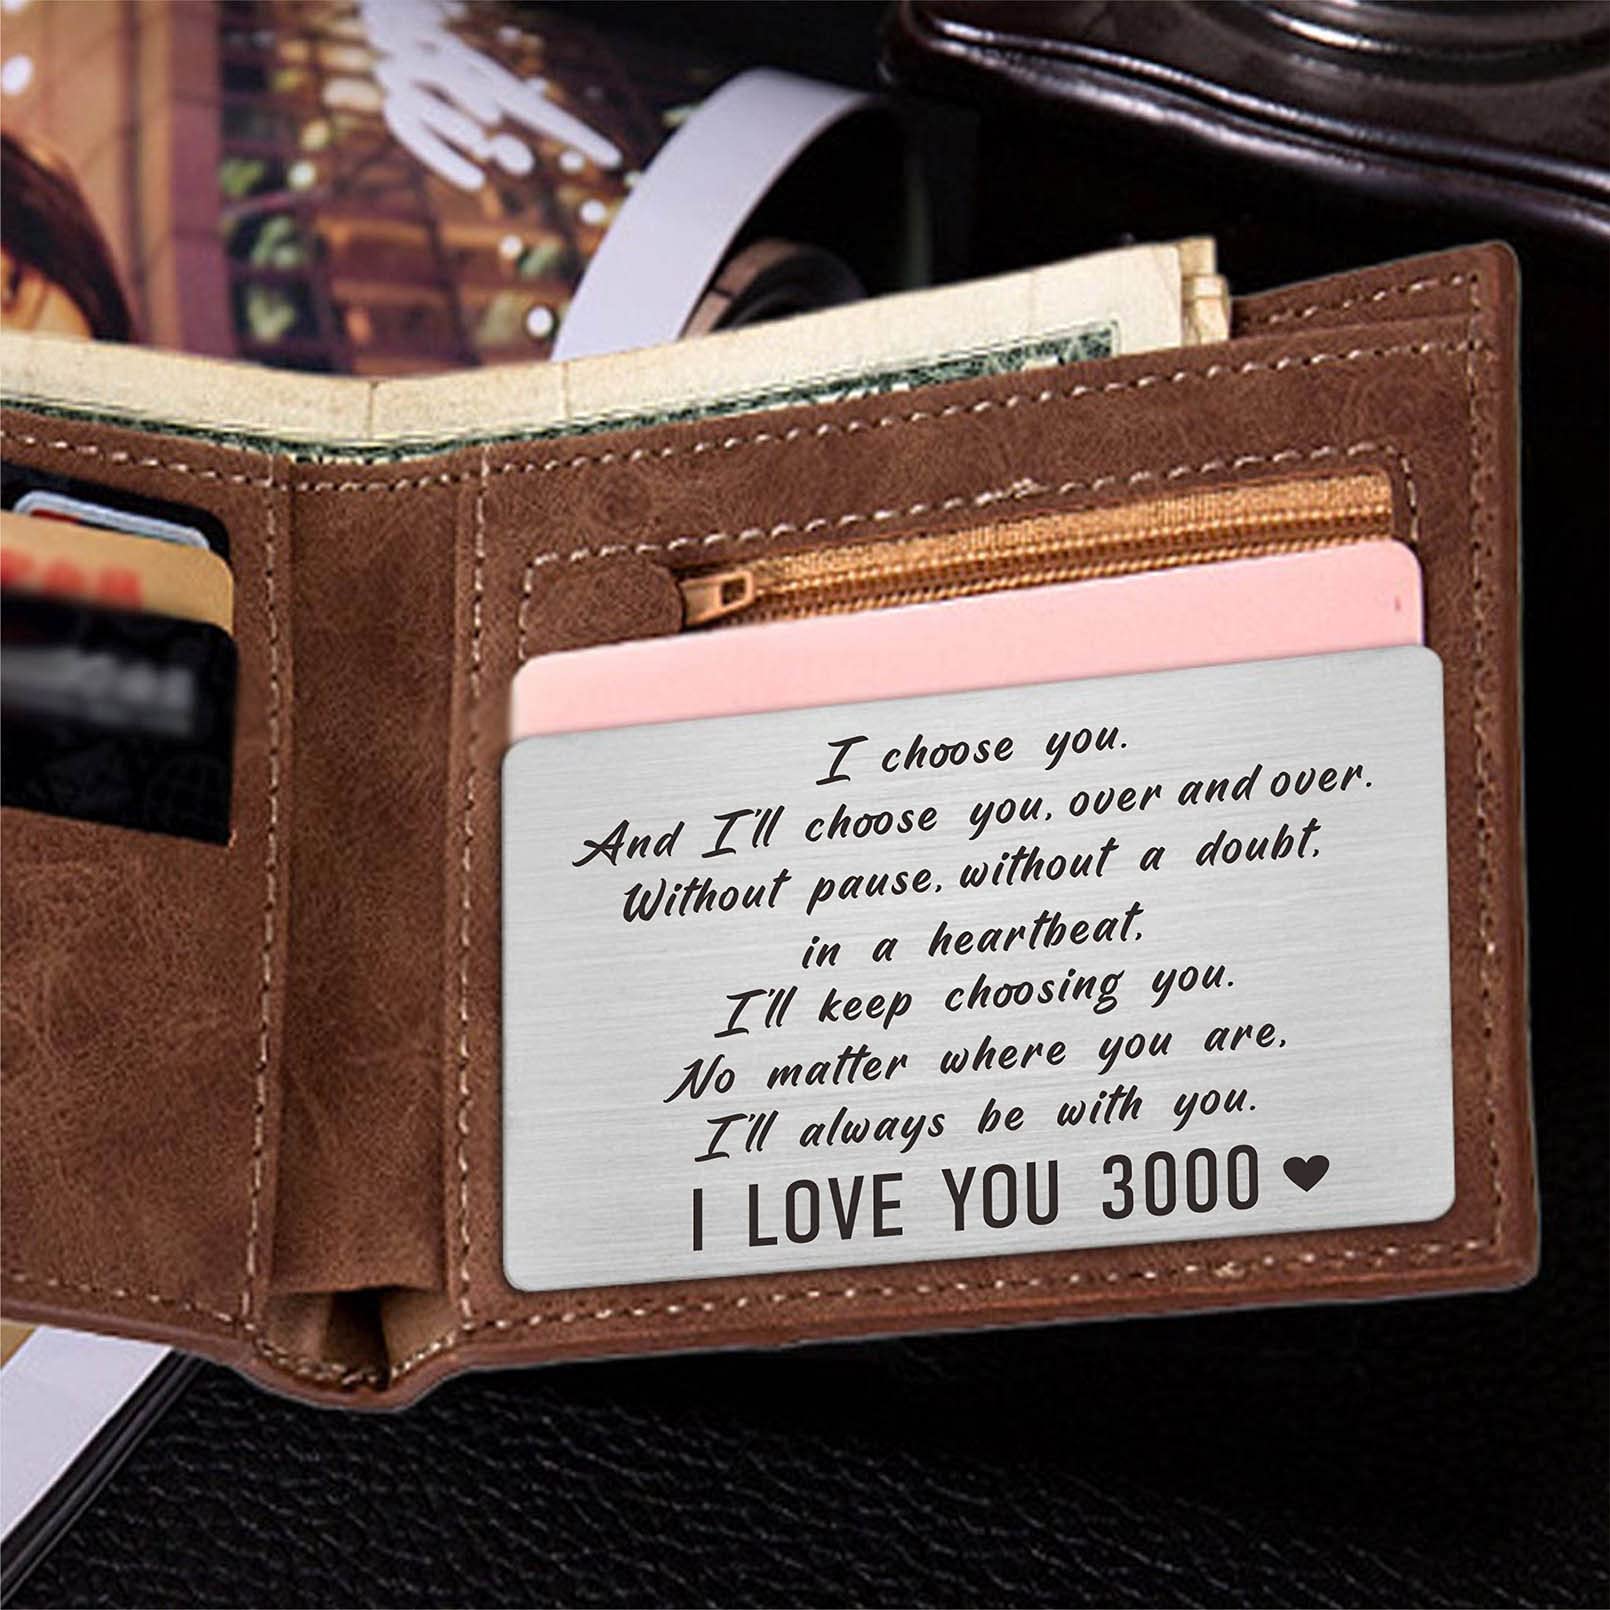 I choose you.
And I'll choose you, over and over.
Without pause, without a doubt,
in a heartbeat,
I'll keep choosing you.
No matter where you are,
I'll always be with you.
I LOVE YOU 3000 ♥